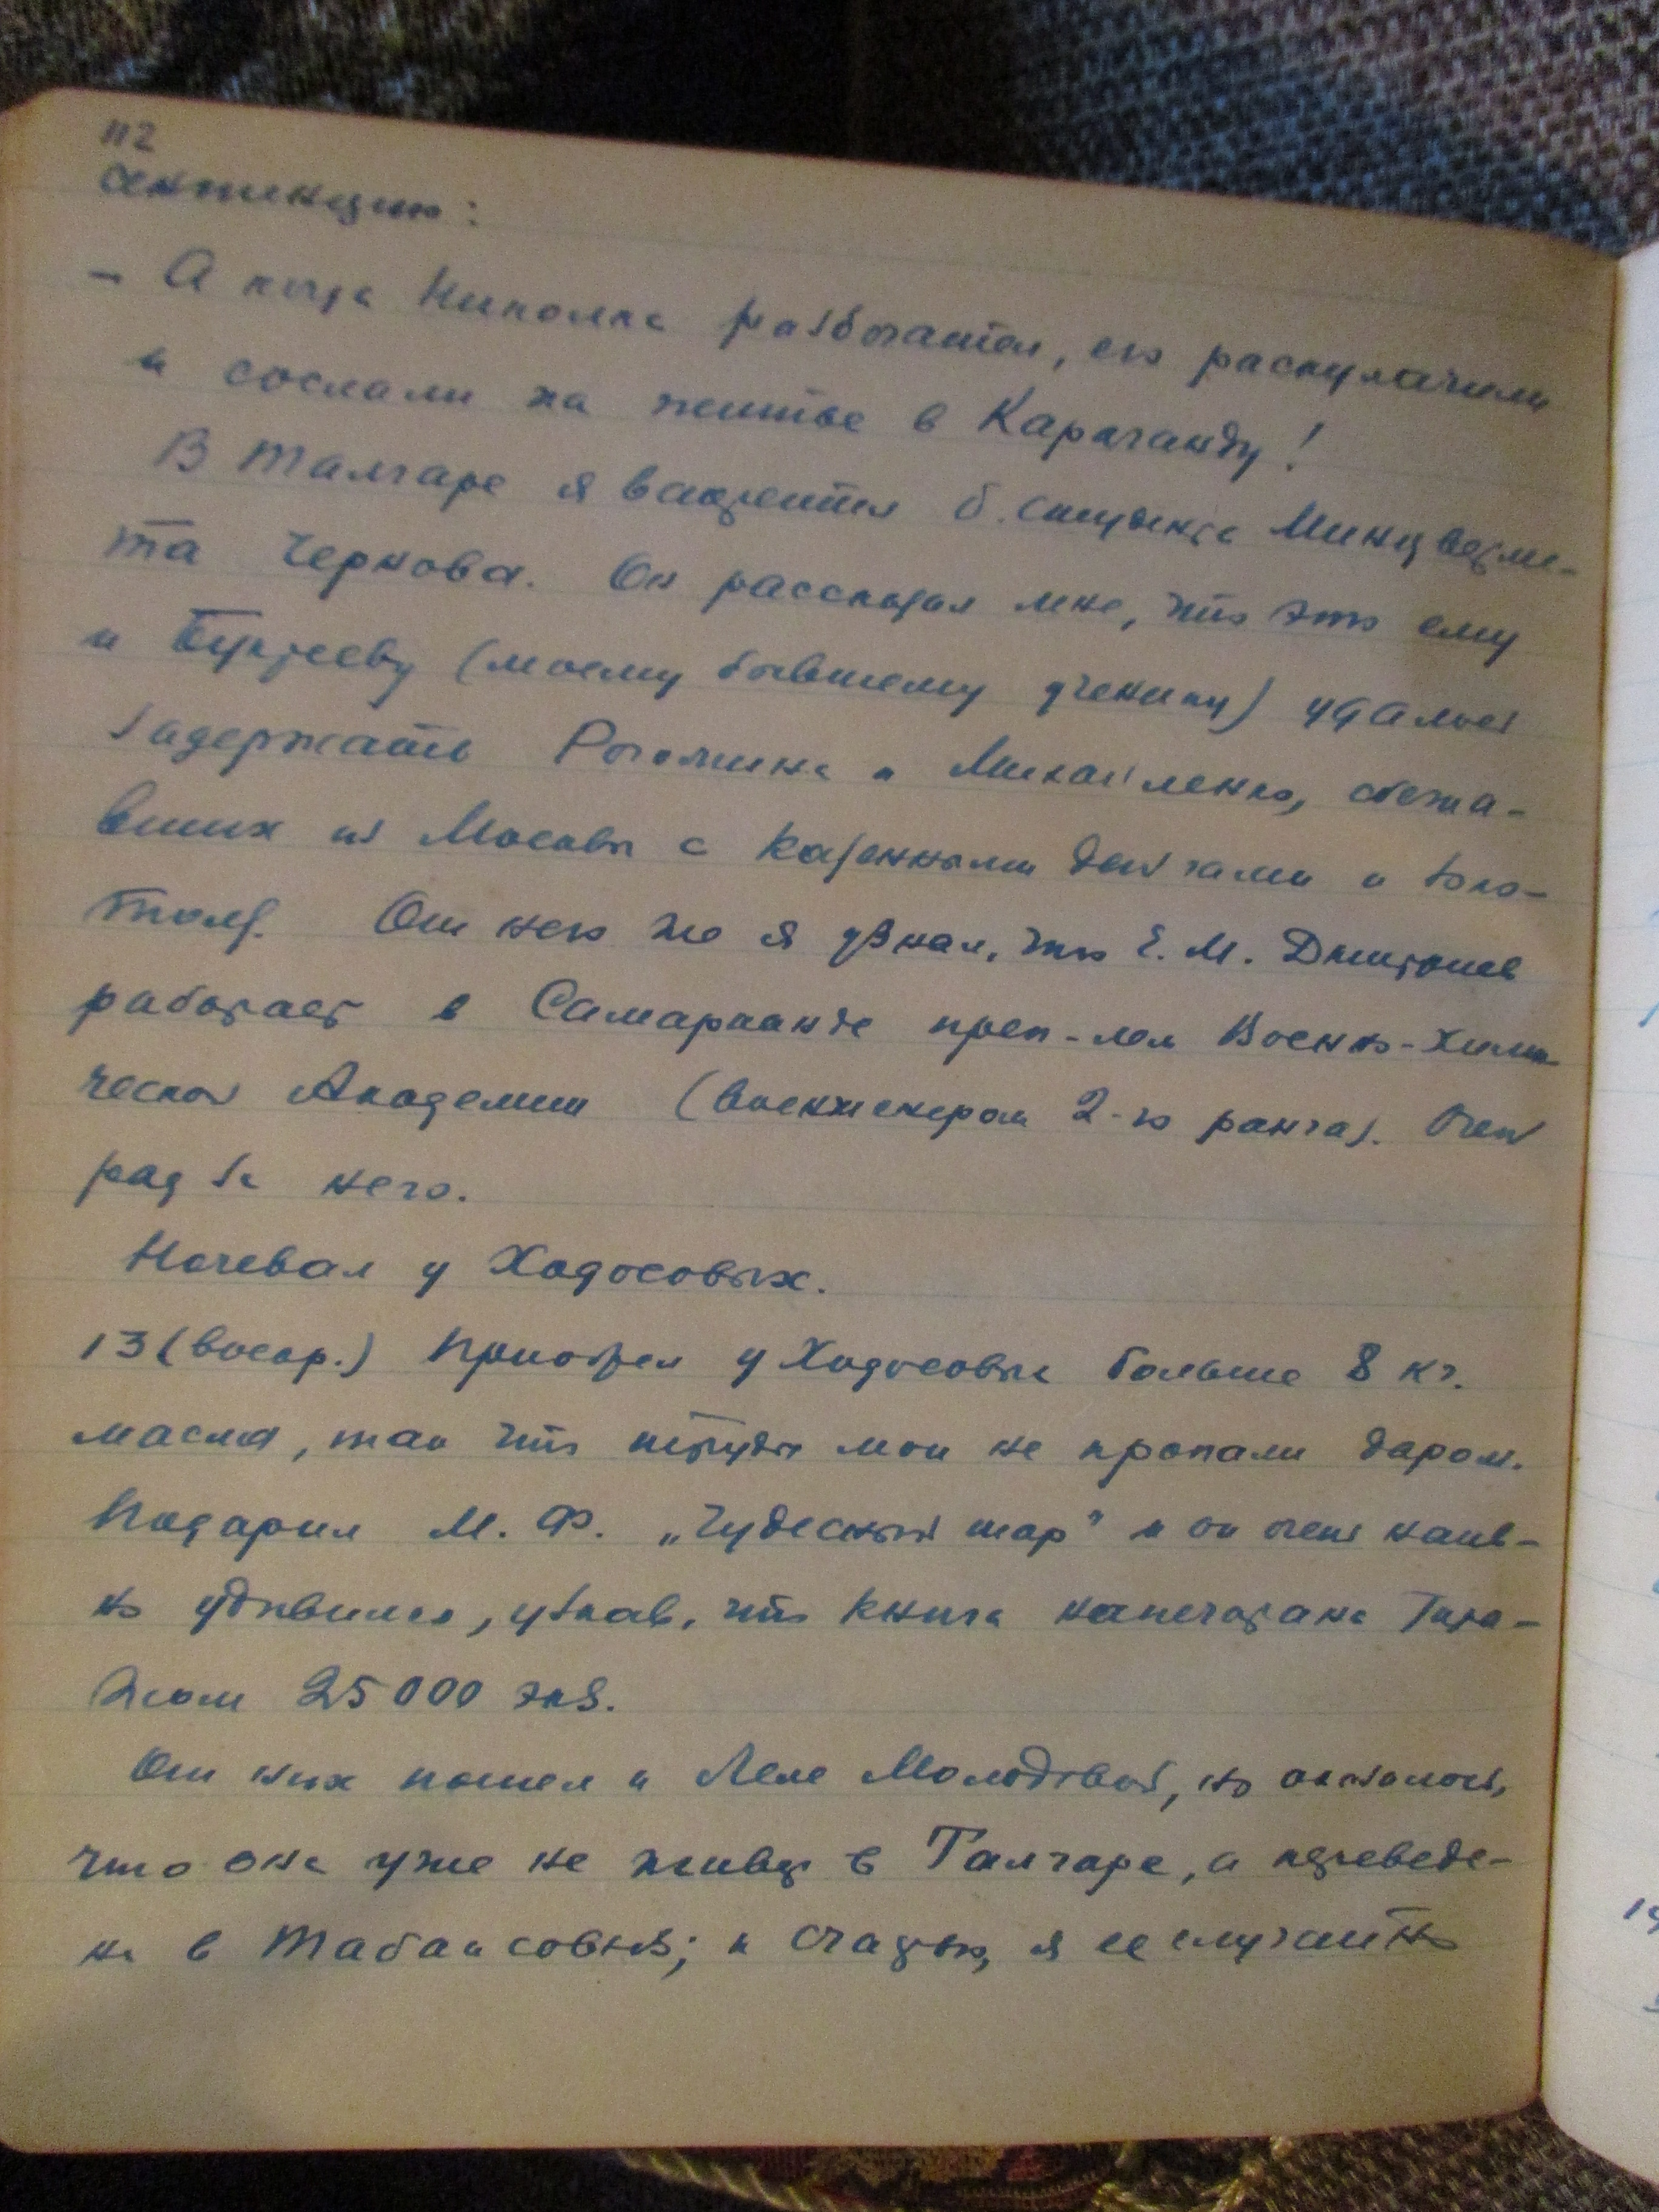 112
сентенцию:
– А когда Николка разбогател, его раскулачили
и сослали на житье в Караганду!
В Талгаре я встретил б. студента Минцветме-
та Чернова. Он рассказал мне, что это ему
и (моему бывшему ученику) удалось
задержать Рогожина и Михайленко, сбежа-
вших из Москвы с казенными деньгами и
От него же я узнал, что Е. М. Дмитриев
работает в Самарканде преп-лем Военно-хими-
ческой Академии (военинженером 2-го ранга). Очень
рад за него.
Ночевал у Ходосовых.
13 (воскр.) Приобрел у Ходосовых больше 8 кг.
масла, так что труды мои не пропали даром.
Подарил М. Ф. „Чудесный шар" и он очень наив-
но удивился, узнав, что книга напечатана тира-
жом 25000 экз.
От них пошел к Леле Молодовой, но оказалось,
что она уже не живет в Талгаре, а переведе-
на в к счастью, я ее случайно